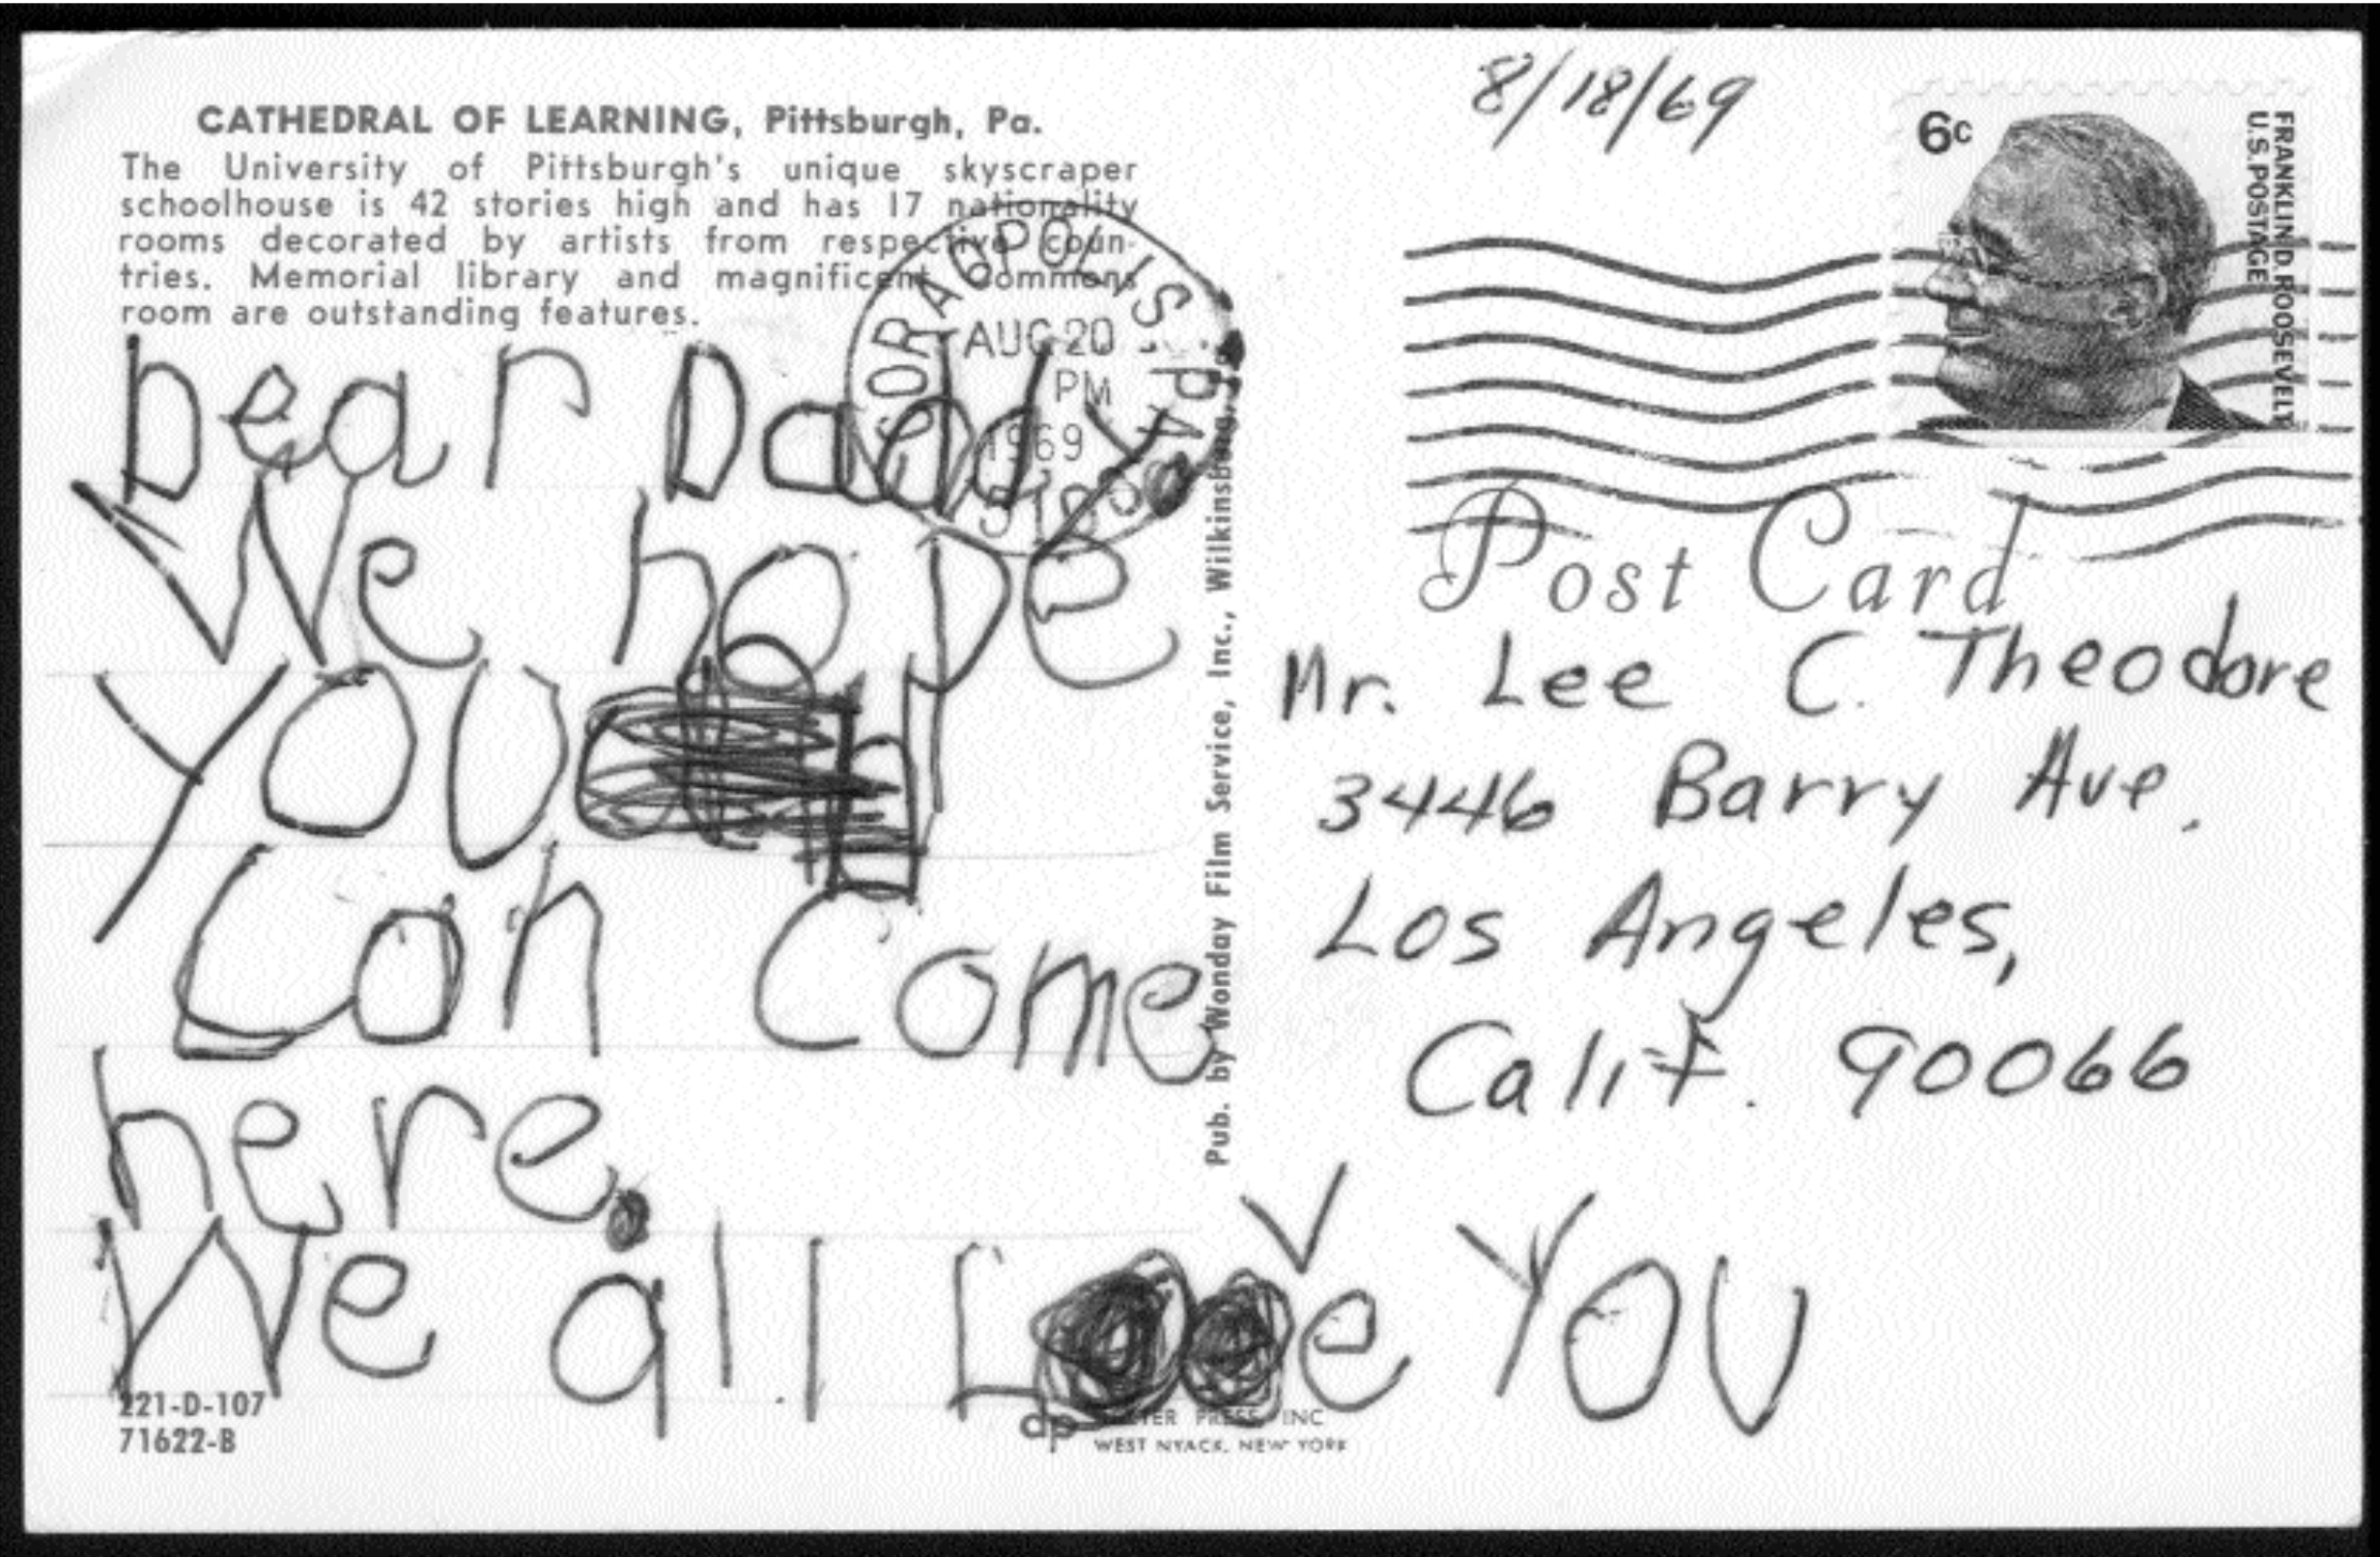 CATHEDRAL OF LEARNING, Pittsburgh, Pa.
The University of Pittsburgh's unique skyscraper
schoolhouse is 42 stories high and has 17 nationality
rooms decorated by artists from respective coun-
tries. Memorial library and magnificent Commons
room are outstanding features.
Dear Daddy
We hope
you
Can Come
here.
We all Love You
221-D-107
71622-B
CORAOPOLIS, PA
AUG 20
PM
1969
Pub. by Wonday Film Service, Inc., Wilkinsburg,
dp
PRESS, INC
WEST NYACK, NEW YORK
8/18/69
6c
FRANKLIN D. ROOSEVELT
U.S. POSTAGE
Post Card
Mr. Lee C. Theodore
3446 Barry Ave.
Los Angeles,
Calif. 90066